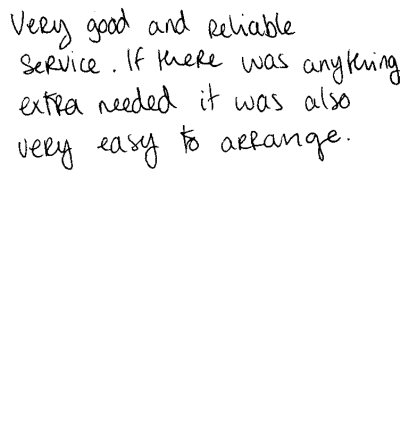 Very good and reliable
service. If there was anything
extra needed it was also
very easy to arrange.